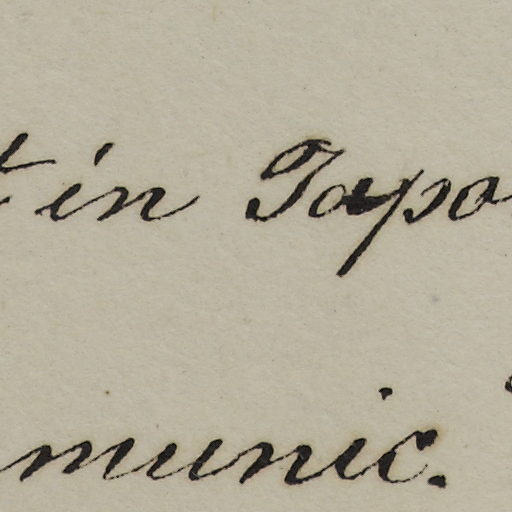 t in Tapo
munic.